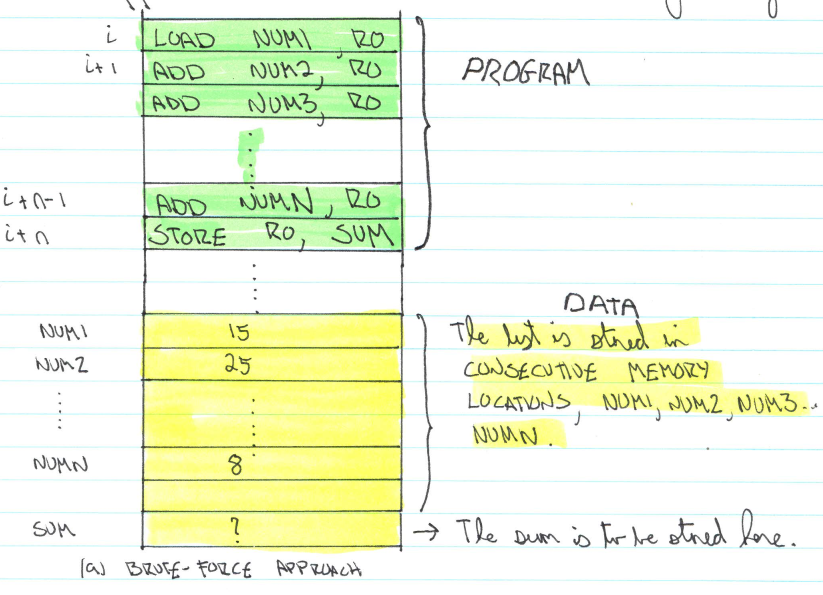 i LOAD NUM1, R0
i+1 ADD NUM2, R0
ADD NUM3, R0
PROGRAM
⋮
i+n-1 ADD NUMN, R0
i+n STORE R0, SUM
⋮
DATA
NUM1 15
The list is stored in
NUM2 25
CONSECUTIVE MEMORY
LOCATIONS, NUM1, NUM2, NUM3...
NUMN.
⋮ ⋮
NUMN 8
SUM ? → The sum is to be stored here.
(a) BRUTE-FORCE APPROACH